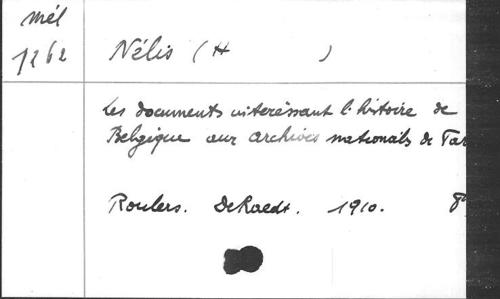 Mél
7262
Nélis (H )
Les documents intéressant l'histoire de
Belgique aux Archives nationals de
Roulers. DeRaedt. 1910. 8°